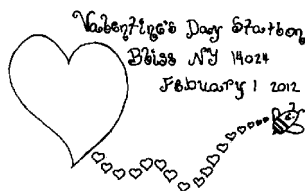 Valentine's Day Station
Bliss NY 14024
February 1 2012